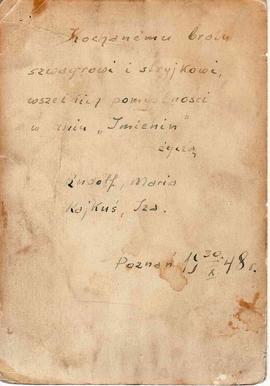 Kochanemu bratu
szwagrowi i stryjkowi,
wszelkiej pomyślności
w dniu „Imienin"
życzą
Rudolf, Maria
Kajkuś, Iza.
Poznań 19 30/X 48 r.